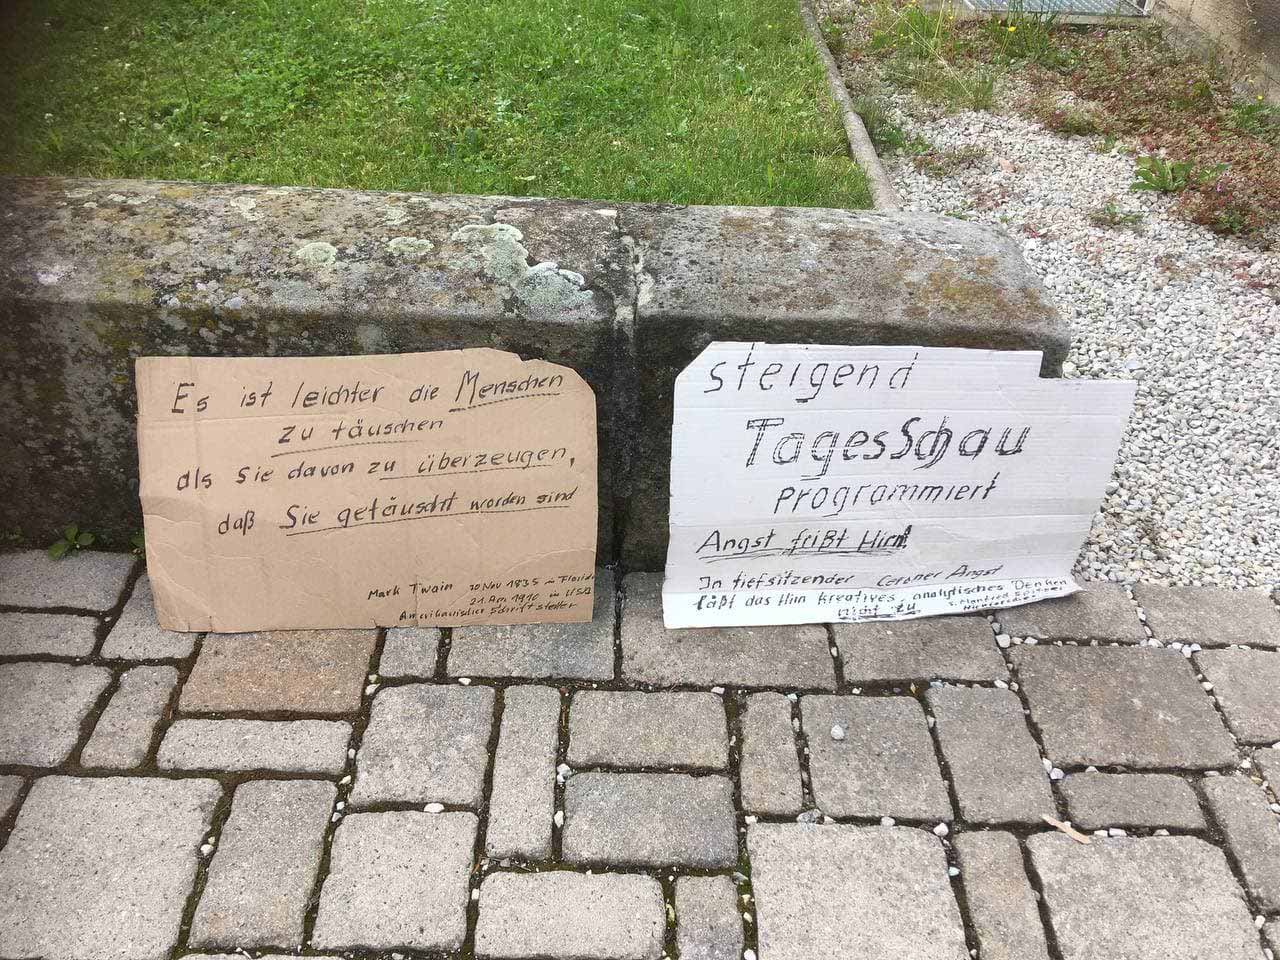 Es ist leichter die Menschen
zu täuschen
als Sie davon zu überzeugen,
daß Sie getäuscht worden sind
Mark Twain 30 Nov 1835 in Florida
21. Apr 1910 in USA
Amerikanischer Schriftsteller
steigend
TagesSchau
programmiert
Angst frißt Hirn!
In tiefsitzender Coroner Angst
läßt das Hirn kreatives, analytisches Denken
nicht zu.
Manfred